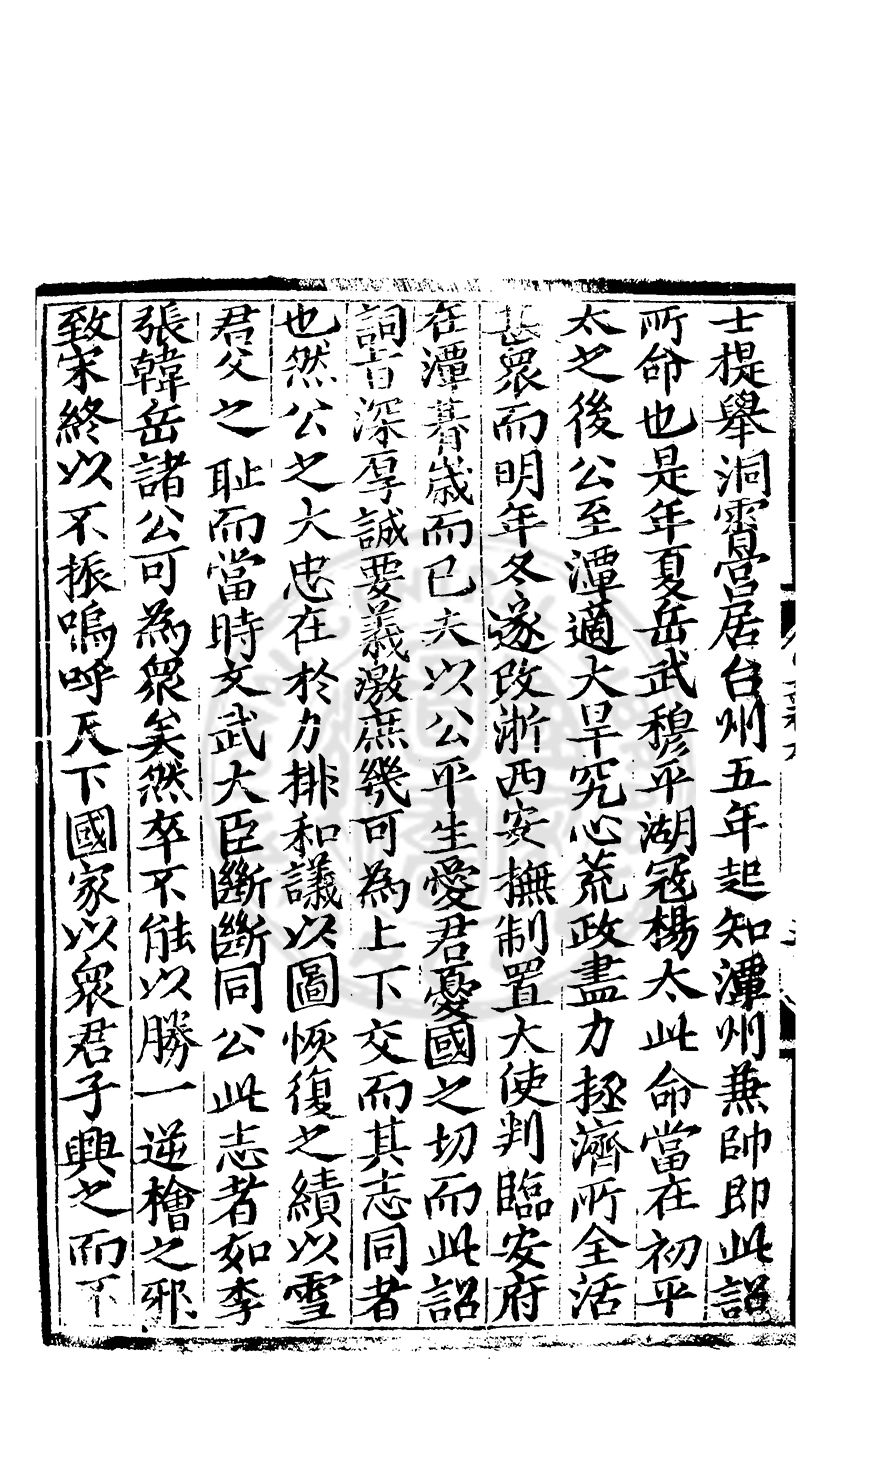 士提舉洞霄宮居台州五年起知潭州兼帥即此詔
所命也是年夏岳武穆平湖冦楊太此命當在初平
太之後公至潭適大旱究心荒政盡力拯濟所全活
甚衆而明年冬遂改浙西安撫制置大使判臨安府
在潭朞歲而已夫以公平生愛君憂國之切而此詔
詞旨深厚誠要義激庶幾可為上下交而其志同者
也然公之大忠在於力排和議以圖恢復之績以雪
君父之恥而當時文武大臣斷斷同公此志者如李
張韓岳諸公可為衆矣然卒不能以勝一逆檜之邪
致宋終以不振嗚呼天下國家以衆君子興之而不